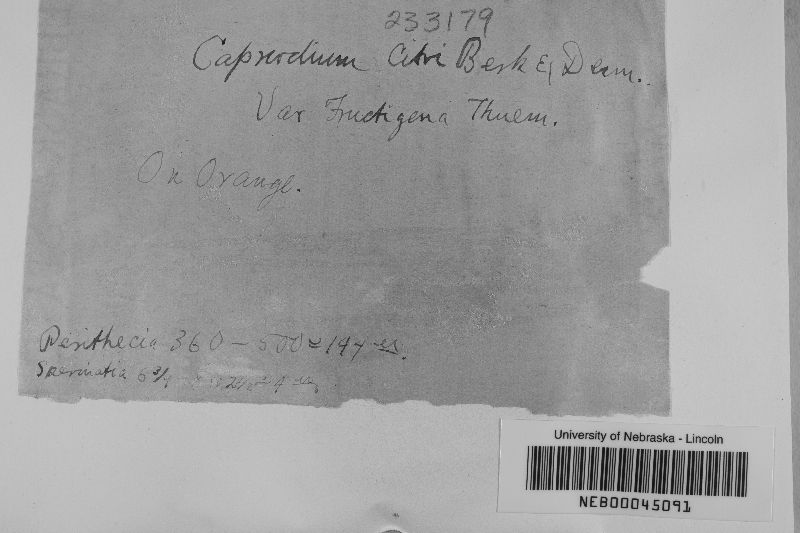 233179
Capnodium Citri Berk & Desm.
Var Fructigena Thuem.
On Orange.
Perithecia 360 – 500 =
Spermatia 6 3/4
University of Nebraska - Lincoln
NEB00045091